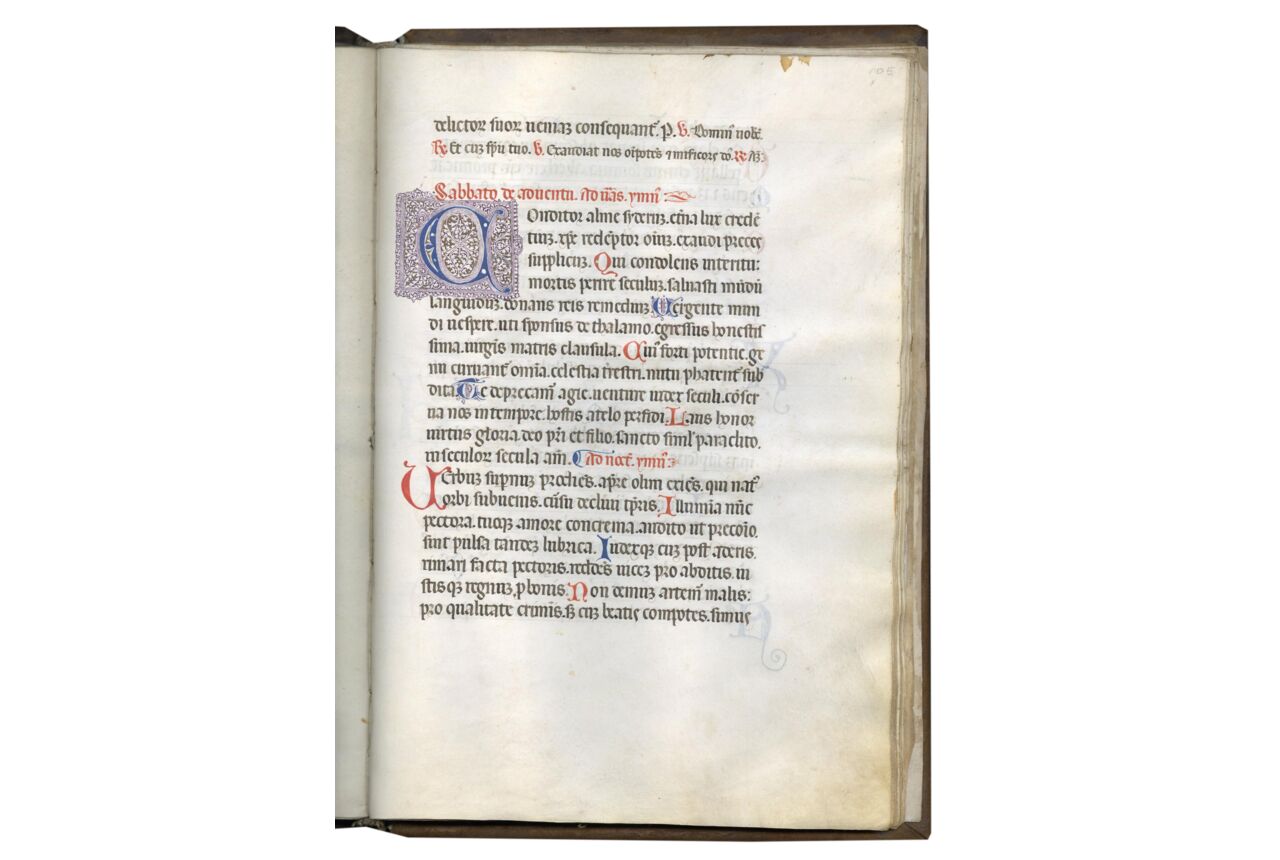 105
delictor suor ueniaz consequant᷑. P. V. Domin᷑ uobc̄.
R. Et cuz sp̄u tuo. V. Exaudiat nos oīpotēs ⁊ misficors d̄s. R. Am̄.
Sabbato de aduentu. Ad ūas. ymn᷑
COnditor alme syderuz. etn̄a lux credē
tiuz. xp̄e redēptor oiuz. exaudi preces
supplicuz. Qui condolens interitu:
mortis perire seculuz. saluasti mūdū
languiduz. donans reis remediuz. Uergente mun
di uespere. uti sponsus de thalamo. egressus honestis
sima. uirginis matris clausula. Cuiꝰ forti potentie. ge
nu curuant᷑ omīa. celestia tr̄estri. nutu phatent᷑ sub
dita. Te deprecam᷑ agie. uenture iudex seculi. cōser
ua nos in tempore. hostis a telo perfidi. Laus honor
uirtus gloria. deo pr̄i et filio. sancto siml᷑ paraclito.
in seculor secula. am̄. Ad noct᷑. ymn᷑
UErbuz supnuz prodiēs. a pr̄e olim exiēs. qui nat᷑
orbi subuenis. cursu decliui tp̄ris. Illumina nūc
pectora. tuoqz amore concrema. audito ut preconio.
sint pulsa tandez lubrica. Iudexqz cuz post aderis.
rimari facta pectoris. reddēs uicez pro abditis. iu
stisqz regnuz, p bonis. Non demuz artem᷑ malis:
pro qualitate criminis. sz cuz beatis compotes. simus